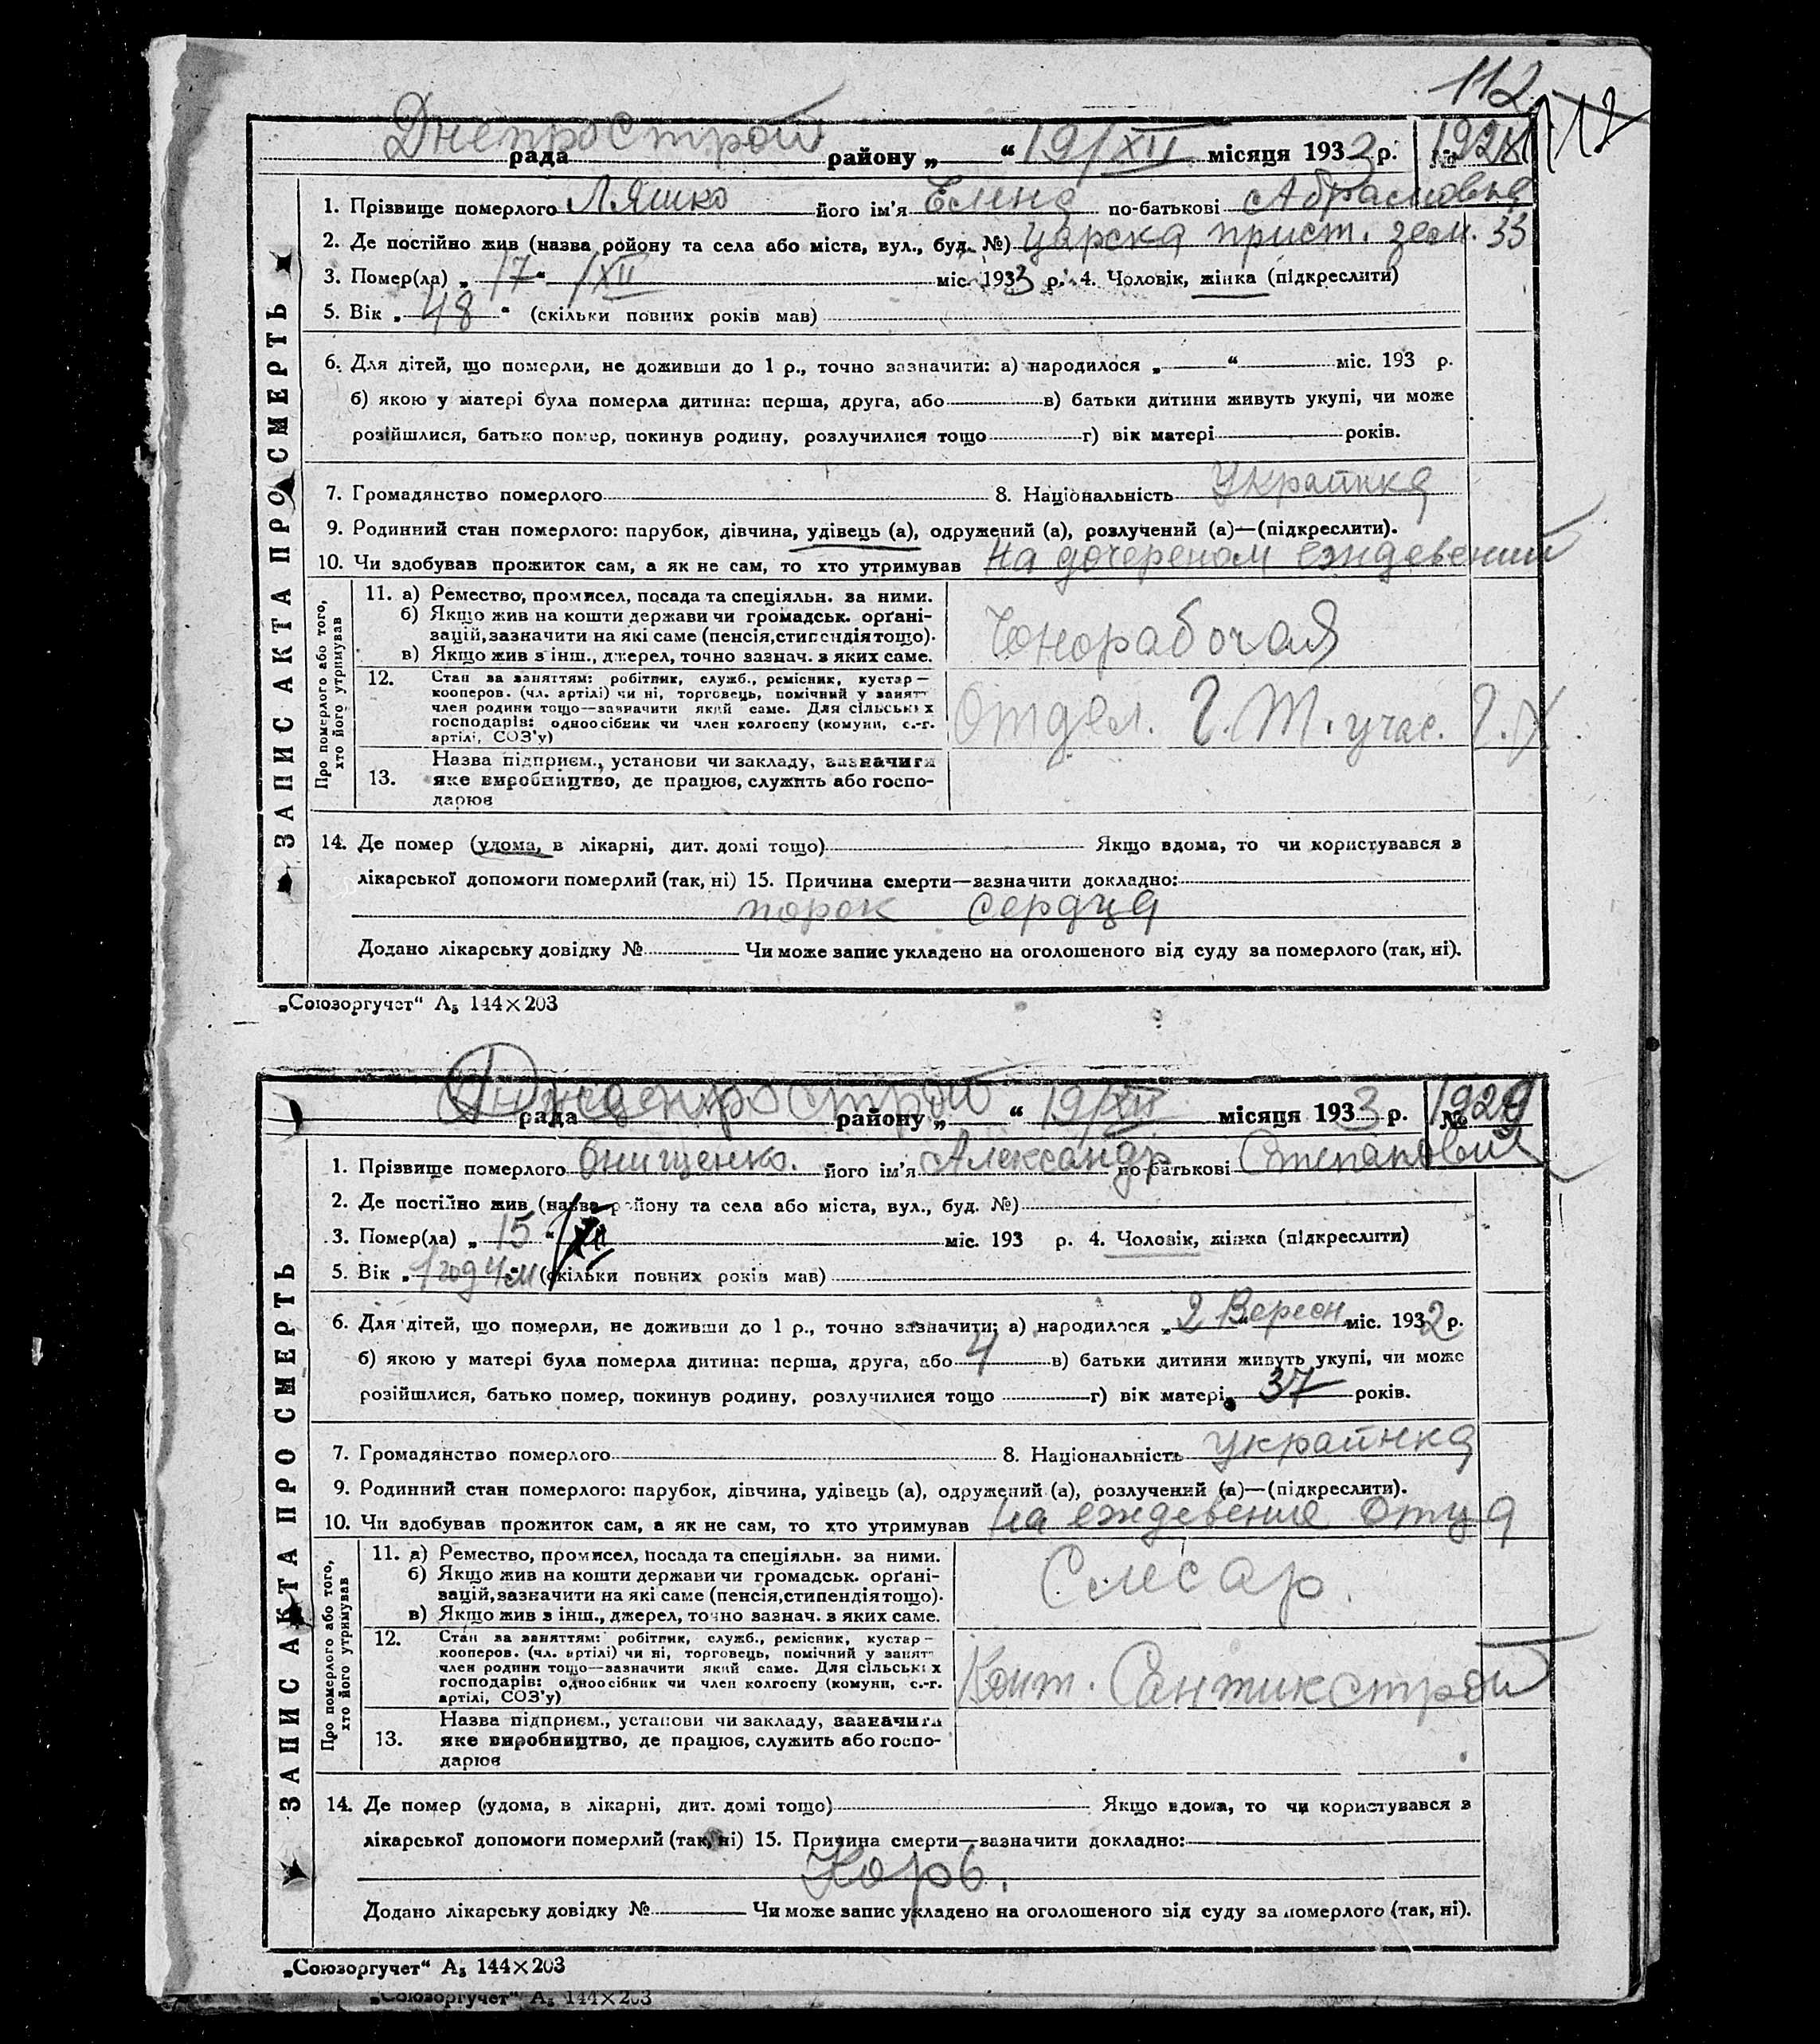 112
112
Днепрострой
рада район у „ “ 19/XII місяця 1933 р. № 1928
1. Прізвище померлого Ляшко його ім’я Елена по-батькові Абрамовна
2. Де постійно жив (назва ройону та села або міста, вул., буд. №) царска прист. зем. 33
3. Помер(ла) „ 17 “ /XII міс. 1933 р. 4. Чоловік, жінка (підкреслити)
5. Вік „ 48 “ (скільки повних років мав)
6. Для дітей, що померли, не доживши до 1 р., точно зазначити: а) народилося „ “ міс. 193 р.
б) якою у матері була померла дитина: перша, друга, або в) батьки дитини живуть укупі, чи може
розійшлися, батько помер, покинув родину, розлучилися тощо г) вік матері років.
7. Громадянство померлого 8. Національність Украинка
9. Родинний стан померлого: парубок, дівчина, удівець (а), одружений (а), розлучений (а)—(підкреслити).
10. Чи здобував прожиток сам, а як не сам, то хто утримував на дочереном ендевений
ЗАПИС АКТА ПРО СМЕРТЬ
Про померлого або того,
хто його утримував
11. а) Ремество, промисел, посада та спеціяльн. за ними.
б) Якщо жив на кошти держави чи громадськ. орґані-
зацій, зазначити на які саме (пенсія, стипендія тощо).
в) Якщо жив з інш., джерел, точно зазнач. з яких саме.
Чонорабочая
12. Стан за заняттям: робітник, служб., ремісник, кустар—
кооперов. (чл. артілі) чи ні, торговець, помічний у занятт
член родини тощо—зазначити який саме. Для сільських
господарів: одноосібник чи член колгоспу (комуни, с.-г.
артілі, СОЗ’у)
Отдел. Г. Т. учас.
13. Назва підприєм., установи чи закладу, зазначити
яке виробництво, де працює, служить або госпо-
дарює
14. Де помер (удома, в лікарні, дит. домі тощо) Якщо вдома, то чи користувався з
лікарської допомоги померлий (так, ні) 15. Причина смерти—зазначити докладно:
порок сердца
Додано лікарську довідку № Чи може запис укладено на оголошеного від суду за померлого (так, ні).
„Союзоргучет“ А₅ 144×203
Днепрострой
рада району „ “ 19/XII місяця 1933 р. № 1929
1. Прізвище померлого Онищенко. його ім’я Александр по-батькові Степанович
2. Де постійно жив (назва ройону та села або міста, вул., буд. №)
3. Помер(ла) „ 15 “ /XII міс. 193 р. 4. Чоловік, жінка (підкреслити)
5. Вік „ 1 год 4 м “ (скільки повних років мав)
6. Для дітей, що померли, не доживши до 1 р., точно зазначити: а) народилося „ 2 Вересн міс. 1932 р.
б) якою у матері була померла дитина: перша, друга, або 4 в) батьки дитини живуть укупі, чи може
розійшлися, батько помер, покинув родину, розлучилися тощо г) вік матері 37 років.
7. Громадянство померлого 8. Національність украинка
9. Родинний стан померлого: парубок, дівчина, удівець (а), одружений (а), розлучений (а)—(підкреслити).
10. Чи здобував прожиток сам, а як не сам, то хто утримував на ендевение отца
ЗАПИС АКТА ПРО СМЕРТЬ
Про померлого або того,
хто його утримував
11. а) Ремество, промисел, посада та спеціяльн. за ними.
б) Якщо жив на кошти держави чи громадськ. орґані-
зацій, зазначити на які саме (пенсія, стипендія тощо).
в) Якщо жив з інш., джерел, точно зазнач. з яких саме.
Слесар.
12. Стан за заняттям: робітник, служб., ремісник, кустар—
кооперов. (чл. артілі) чи ні, торговець, помічний у занятт
член родини тощо—зазначити який саме. Для сільських
господарів: одноосібник чи член колгоспу (комуни, с.-г.
артілі, СОЗ’у)
Конт. Сантикстрой
13. Назва підприєм., установи чи закладу, зазначити
яке виробництво, де працює, служить або госпо-
дарює
14. Де помер (удома, в лікарні, дит. домі тощо) Якщо вдома, то чи користувався з
лікарської допомоги померлий (так, ні) 15. Причина смерти—зазначити докладно:
Корь.
Додано лікарську довідку № Чи може запис укладено на оголошеного від суду за померлого (так, ні).
„Союзоргучет“ А₅ 144×203
„Союзоргучет“ А₅ 144×203